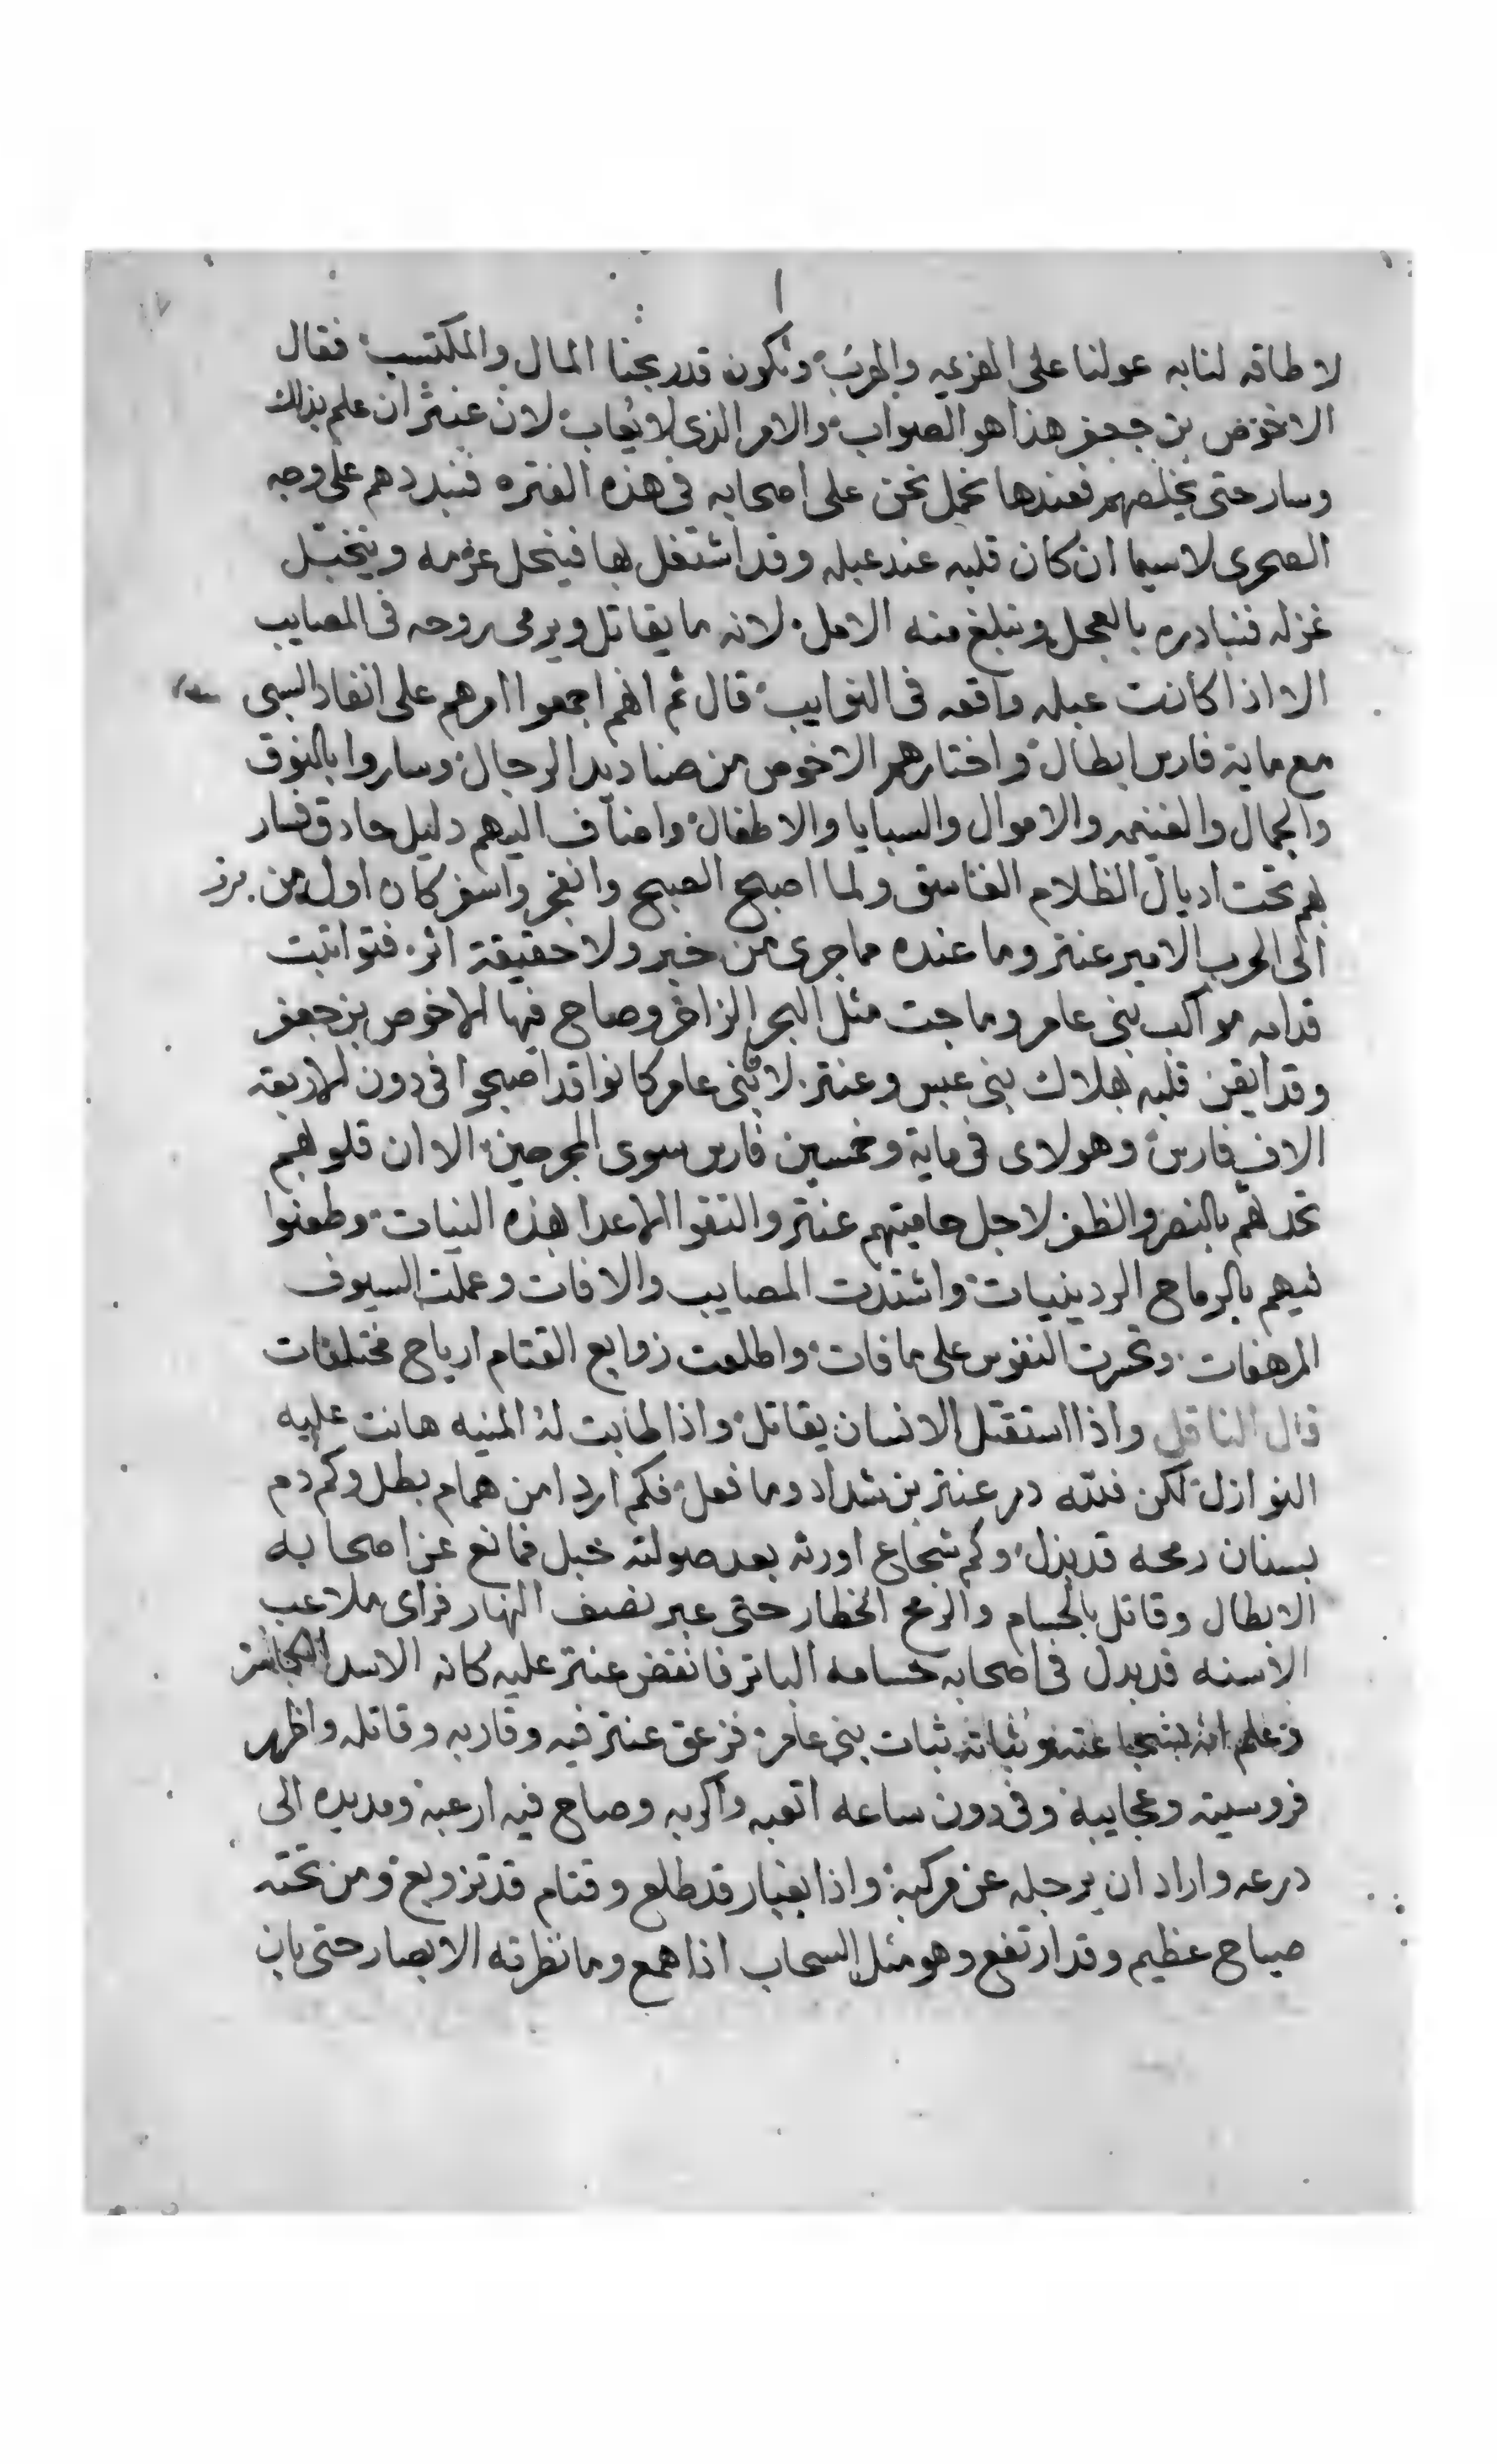 لا طاقه لنا به عولنا على الهزيمه والهرب ونكون قد ربحنا المال والمكتسب فقال
الاخوص بن جعفر هذا هو الصواب والامر الذي لا يعاب لان عنتر ان علم بذلك
وسار حتى يخلصهم فعندها نحمل نحن على اصحابه في هذه الفتره فنبددهم على وجه
الصحرى لاسيما ان كان قلبه عند عبله وقد اشتغل بها فينحل عزمه ويختبل
غزله فنبادره بالعجل ونبلغ منه الامل لانه ما يقاتل ويرمى روحه فى المصايب
الا اذا كانت عبله واقعه فى النوايب قال ثم انهم اجمعوا امرهم على انفاد السبى
مع ماية فارس ابطال واختارهم الاخوص من صناديد الرجال وساروا بالنوق
والجمال والغنيمه والاموال والسبايا والاطفال واضاف اليهم دليل حادق فسار
بهم تحت اديال الظلام الغاسق ولما اصبح الصبح وانفجر واسفر كان اول من برز
الى الحرب الامير عنتر وما عنده مما جرى من خبر ولا حقيقة اثر فتواتبت
قدامه مواكب بنى عامر وماجت مثل البحر الزاخر وصاح فيها الاخوص بن جعفر
وقد ايقن قلبه بهلاك بنى عبس وعنتر لان بنى عامر كانوا قد اصبحوا فى دون الاربعة
الاف فارس وهولاى فى ماية وخمسين فارس سوى المجرحين الا ان قلوبهم
تحدثهم بالنصر والظفر لاجل حاميتهم عنتر والتقوا الاعدا بهذه النيات وطعنوا
فيهم بالرماح الردينيات واشتدت المصايب والافات وعملت السيوف
المرهفات وتحسرت النفوس على ما فات واطلعت زوابع القتام ارياح مختلفات
قال الناقل واذا استقتل الانسان يقاتل واذا طابت له المنيه هانت عليه
النوازل لكن فلله در عنتر بن شداد وما فعل فكم اردا من همام بطل وكم دم
بسنان رمحه قد بزل وكم شجاع اورثه بعد صولته خبل فمانع عن اصحابه
الابطال وقاتل بالحسام والرمح الخطار حتى عبر نصف النهار فراى ملاعب
الاسنه قد بدل فى اصحابه حسامه الباتر فانقض عنتر عليه كانه الاسد
وعلم انه بشجاعته وثباته ثبات بنى عامر فزعق عنتر فيه وقاربه وقاتله واظهر
فروسيته وعجايبة وفى دون ساعه اتعبه واكربه وصاح فيه ارعبه ومد يده الى
درعه واراد ان يرجله عن مركبه واذا بغبار قد طلع وقتام قد تزوبع ومن تحته
صياح عظيم وقد ارتفع وهو مثل السحاب اذا همع وما نظرته الابصار حتى بان